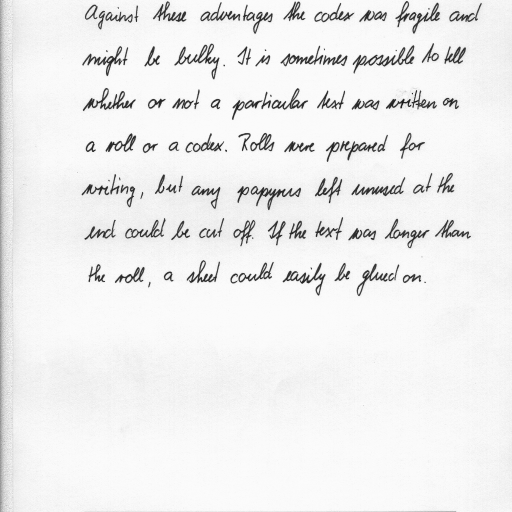 Against these advantages the codex was fragile and
might be bulky. It is sometimes possible to tell
whether or not a particular text was written on
a roll or a codex. Rolls were prepared for
writing, but any papyrus left unused at the
end could be cut off. If the text was longer than
the roll, a sheet could easily be glued on.